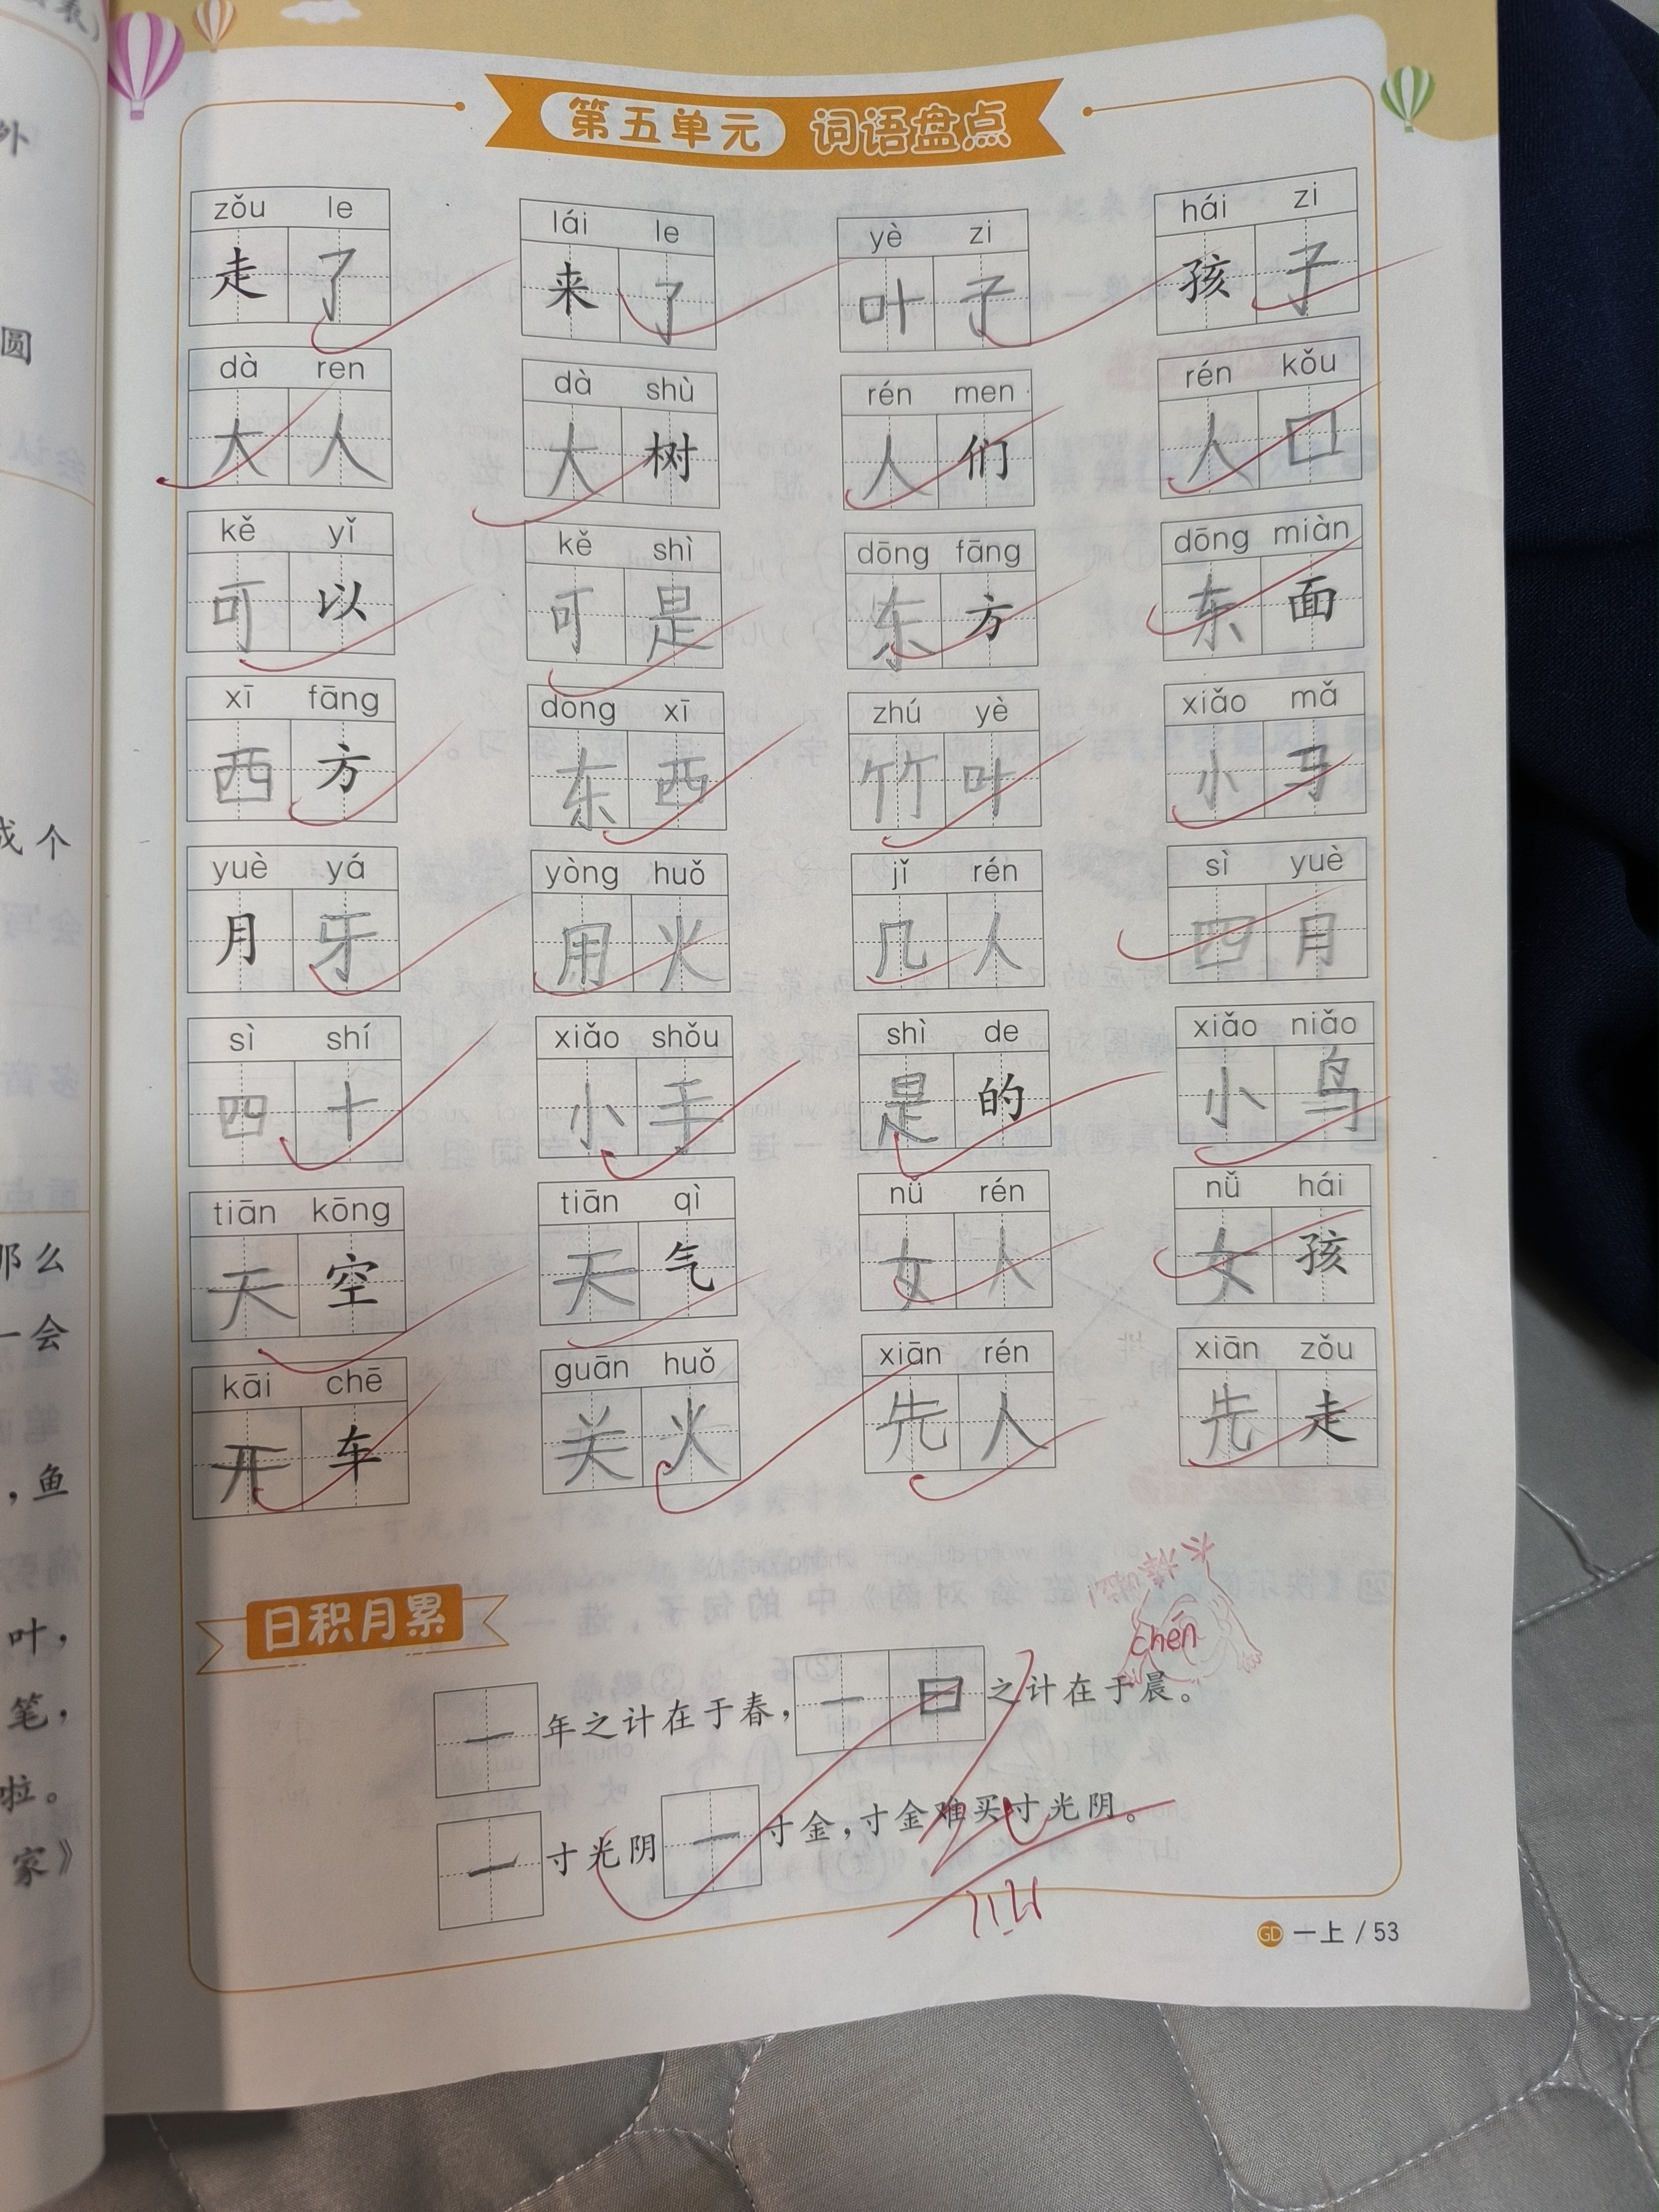 第五单元 词语盘点
zǒu le lái le yè zi hái zi
走了 来了 叶子 孩子
dà ren dà shù rén men rén kǒu
大人 大树 人们 人口
kě yǐ kě shì dōng fāng dōng miàn
可以 可是 东方 东面
xī fāng dōng xī zhú yè xiǎo mǎ
西方 东西 竹叶 小马
yuè yá yòng huǒ jǐ rén sì yuè
月牙 用火 几人 四月
sì shí xiǎo shǒu shì de xiǎo niǎo
四十 小手 是的 小鸟
tiān kōng tiān qì nǚ rén nǚ hái
天空 天气 女人 女孩
kāi chē guān huǒ xiān rén xiān zǒu
开车 关火 先人 先走
日积月累
chén
一年之计在于春，一日之计在于晨。
一寸光阴一寸金，寸金难买寸光阴。
GD 一上 / 53
外
圆
成个
会写
多音
重点
那么
一会
笔
，鱼
叶，
笔，
啦。
家》